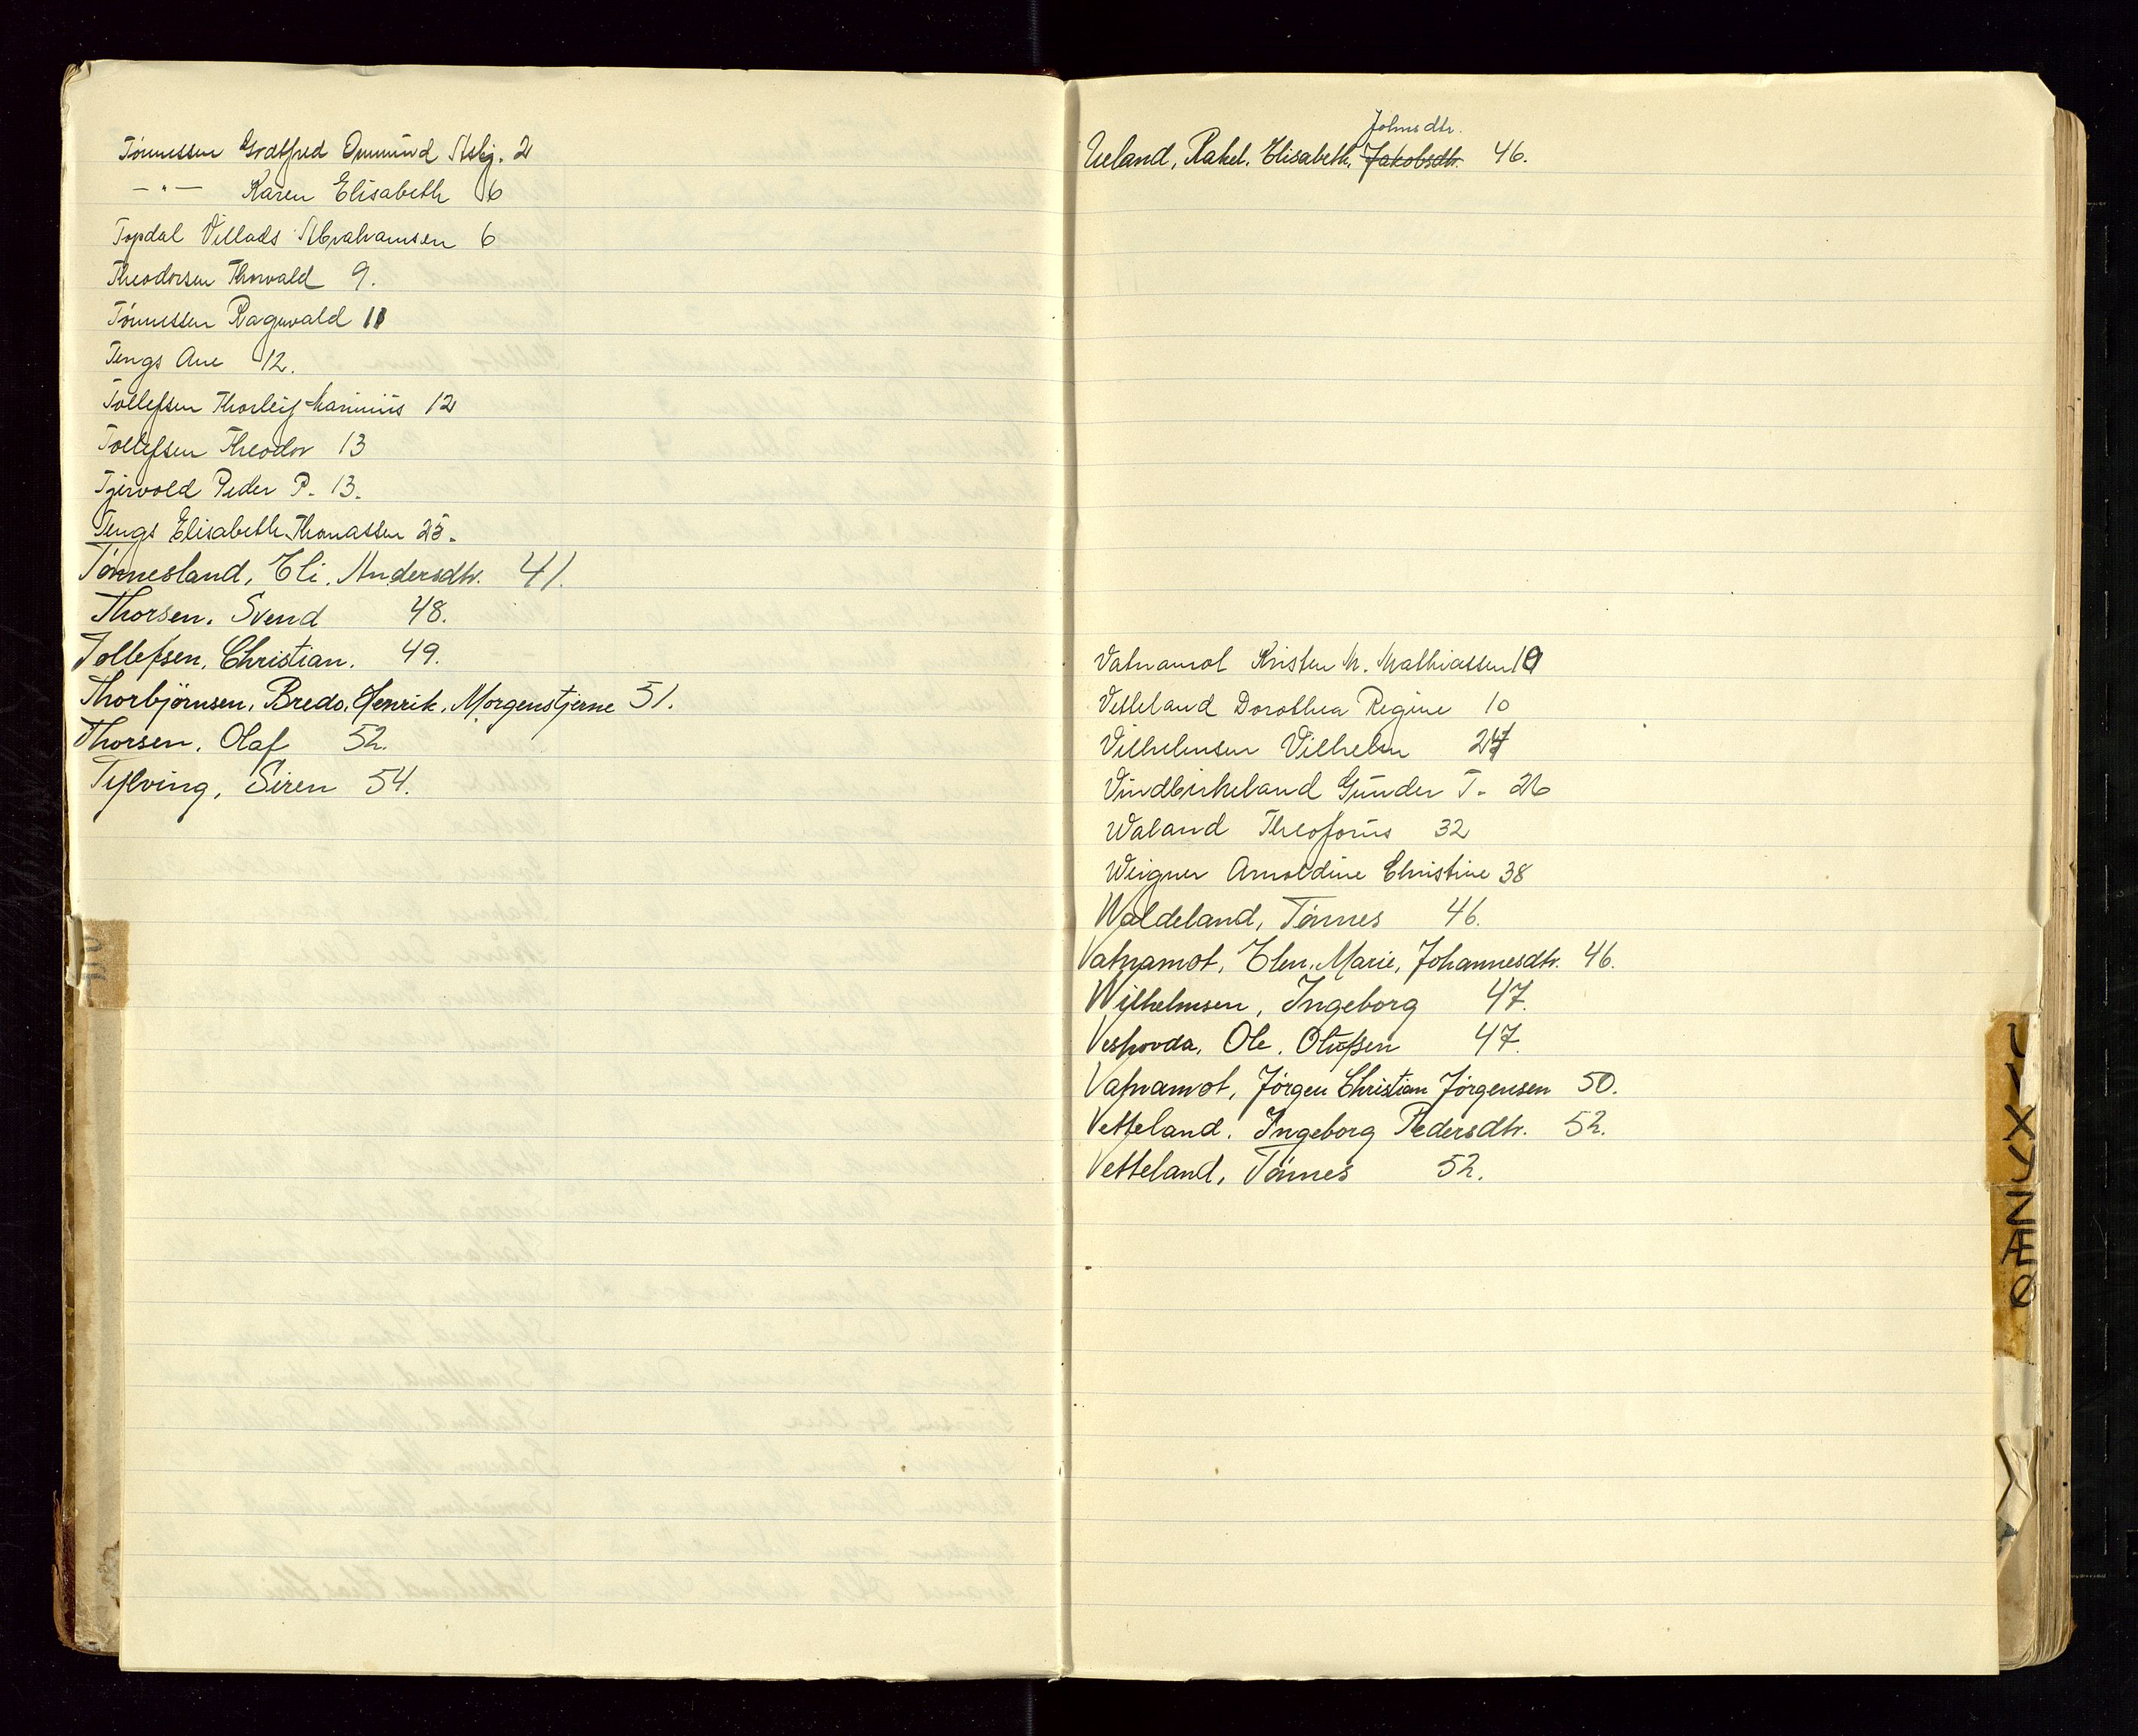 Tönnessen Godtfred Ommund Asbj. 2
— " — Karen Elisabeth 6
Topdal Villads Abrahamsen 6
Theodorsen Thorvald 9.
Tönnessen Ragnvald 11
Tengs Ane 12.
Tollefsen Thorleif Marinius 12
Tollefsen Theodor 13
Tjersvold Peder P. 13.
Tengs Elisabeth Thomassen 25.
Tönnesland, Eli. Andersdtr. 41.
Thorsen. Svend 48.
Tollefsen, Christian. 49.
Thorbjörnsen, Bredo, Henrik, Morgenstjerne 51.
Thorsen. Olaf 52.
Tysving, Siren 54.
Johnsdtr.
Ueland, Rakel. Elisabeth. Jakobsdtr. 46.
Vatnamot Kristen M. Mathiassen 10
Vetteland Dorothea Regine 10
Vilhelmsen Vilhelm 24
Vindbirkeland Gunder T. 26
Waland Theoforus 32
Weigner Arnoldine Christine 38
Waldeland, Tönnes 46.
Vatnamot, Elen. Marie, Johannesdtr. 46.
Wilhelmsen, Ingeborg 47.
Veshovda, Ole. Olufsen 47.
Vatnamot, Jörgen Christian Jörgensen 50.
Vetteland. Ingeborg Pedersdtr. 52.
Vetteland, Tönnes 52.
UVXYZÆØ